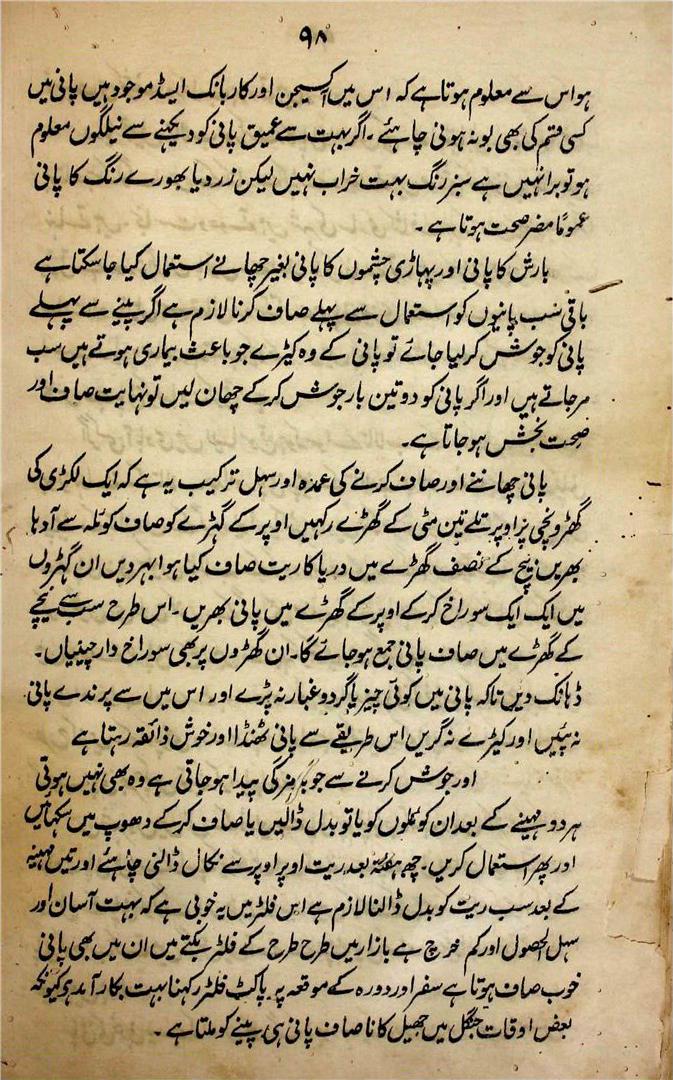 ۹۸
ہو اس سے معلوم ہوتا ہے کہ اس میں اکسیجن اور کاربانک ایسڈ موجود ہیں پانی میں
کسی قسم کی بھی بو نہ ہونی چاہئے ۔ اگر بہت سے عمیق پانی کو دیکھنے سے نیلگوں معلوم
ہو تو برا نہیں ہے سبز رنگ بہت خراب نہیں لیکن زرد یا بھورے رنگ کا پانی
عموماً مضر صحت ہوتا ہے ۔
بارش کا پانی اور پہاڑی چشموں کا پانی بغیر چھانے استعمال کیا جا سکتا ہے
باقی سب پانیوں کو استعمال سے پہلے صاف کرنا لازم ہے اگر پینے سے پہلے
پانی کو جوش کر لیا جائے تو پانی کے وہ کیڑے جو باعث بیماری ہوتے ہیں سب
مر جاتے ہیں اور اگر پانی کو دو تین بار جوش کر کے چھان لیں تو نہایت صاف اور
صحت بخش ہو جاتا ہے ۔
پانی چھاننے اور صاف کرنے کی عمدہ اور سہل ترکیب یہ ہے کہ ایک لکڑی کی
گھڑونچی پر اوپر تلے تین مٹی کے گھڑے رکہیں اوپر کے گہڑے کو صاف کوئلہ سے آدہا
بھریں بیچ کے نصف گھڑے میں دریا کا ریت صاف کیا ہوا بہر دیں ان گہڑوں
میں ایک ایک سوراخ کر کے اوپر کے گھڑے میں پانی بھریں ۔ اس طرح سب سے نیچے
کے گھڑے میں صاف پانی جمع ہو جائے گا ۔ ان گھڑوں پر بھی سوراخ دار چپنیاں ۔
ڈہانک دیں تاکہ پانی میں کوئی چیز یا گرد و غبار نہ پڑے اور اس میں سے پرندے پانی
نہ پئیں اور کیڑے نہ گریں اس طریقے سے پانی ٹھنڈا اور خوش ذائقہ رہتا ہے
اور جوش کرنے سے جو بد مزگی پیدا ہو جاتی ہے وہ بھی نہیں ہوتی
ہر دو مہینے کے بعد ان کوئلوں کو یا تو بدل ڈالیں یا صاف کر کے دھوپ میں سکہائیں
اور پھر استعمال کریں ۔ چھ ہفتہ بعد ریت اوپر اوپر سے نکال ڈالنی چاہئے اور تین مہینہ
کے بعد سب ریت کو بدل ڈالنا لازم ہے اس فلٹر میں یہ خوبی ہے کہ بہت آسان اور
سہل الحصول اور کم خرچ ہے بازار میں طرح طرح کے فلٹر بکتے ہیں ان میں بھی پانی
خوب صاف ہوتا ہے سفر اور دورہ کے موقعہ پر پاکٹ فلٹر رکہنا بہت بکار آمد ہی کیونکہ
بعض اوقات جنگل میں جھیل کا نا صاف پانی ہی پینے کو ملتا ہے ۔